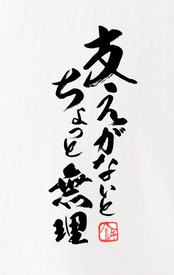 支えがないと
ちょっと無理